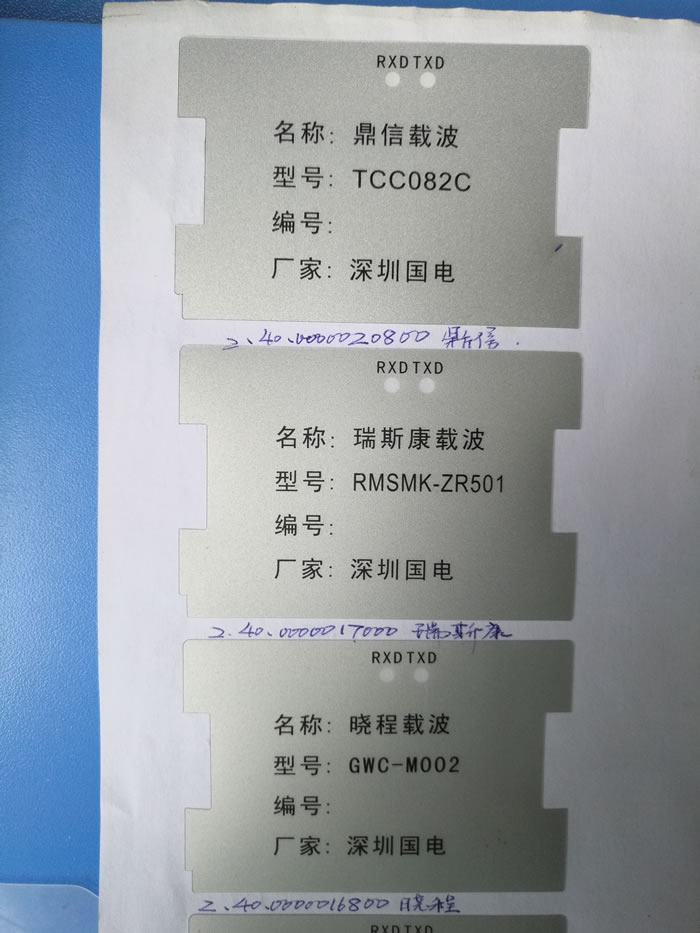 RXD TXD
名称: 鼎信载波
型号: TCC082C
编号:
厂家: 深圳国电
2.40.0000020800 鼎信.
RXD TXD
名称: 瑞斯康载波
型号: RMSMK-ZR501
编号:
厂家: 深圳国电
2.40.0000017000 瑞斯康
RXD TXD
名称: 晓程载波
型号: GWC-M002
编号:
厂家: 深圳国电
2.40.0000016800 晓程
RXD TXD